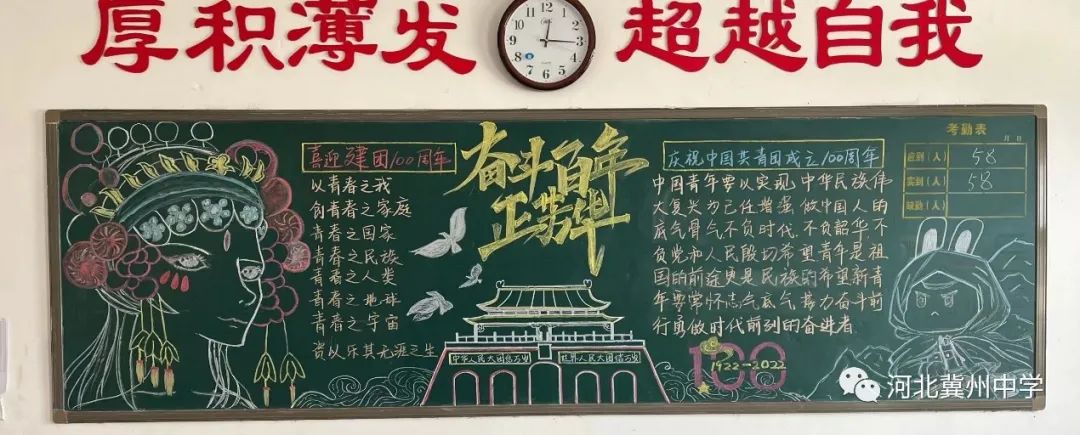 厚积薄发 超越自我
喜迎建团100周年
以青春之我
创青春之家庭
青春之国家
青春之民族
青春之人类
青春之地球
青春之宇宙
资以乐其无涯之生
奋斗百年
正芳华
中华人民大团结万岁
世界人民大团结万岁
庆祝中国共青团成立100周年
中国青年要以实现中华民族伟
大复兴为己任增强做中国人的
底气骨气不负时代不负韶华不
负党和人民殷切希望青年是祖
国的前途更是民族的希望新青
年要常怀志气底气努力奋斗前
行勇做时代前列的奋进者
100
1922-2022
考勤表
月 日
应到(人) 58
实到(人) 58
缺勤(人)
河北冀州中学